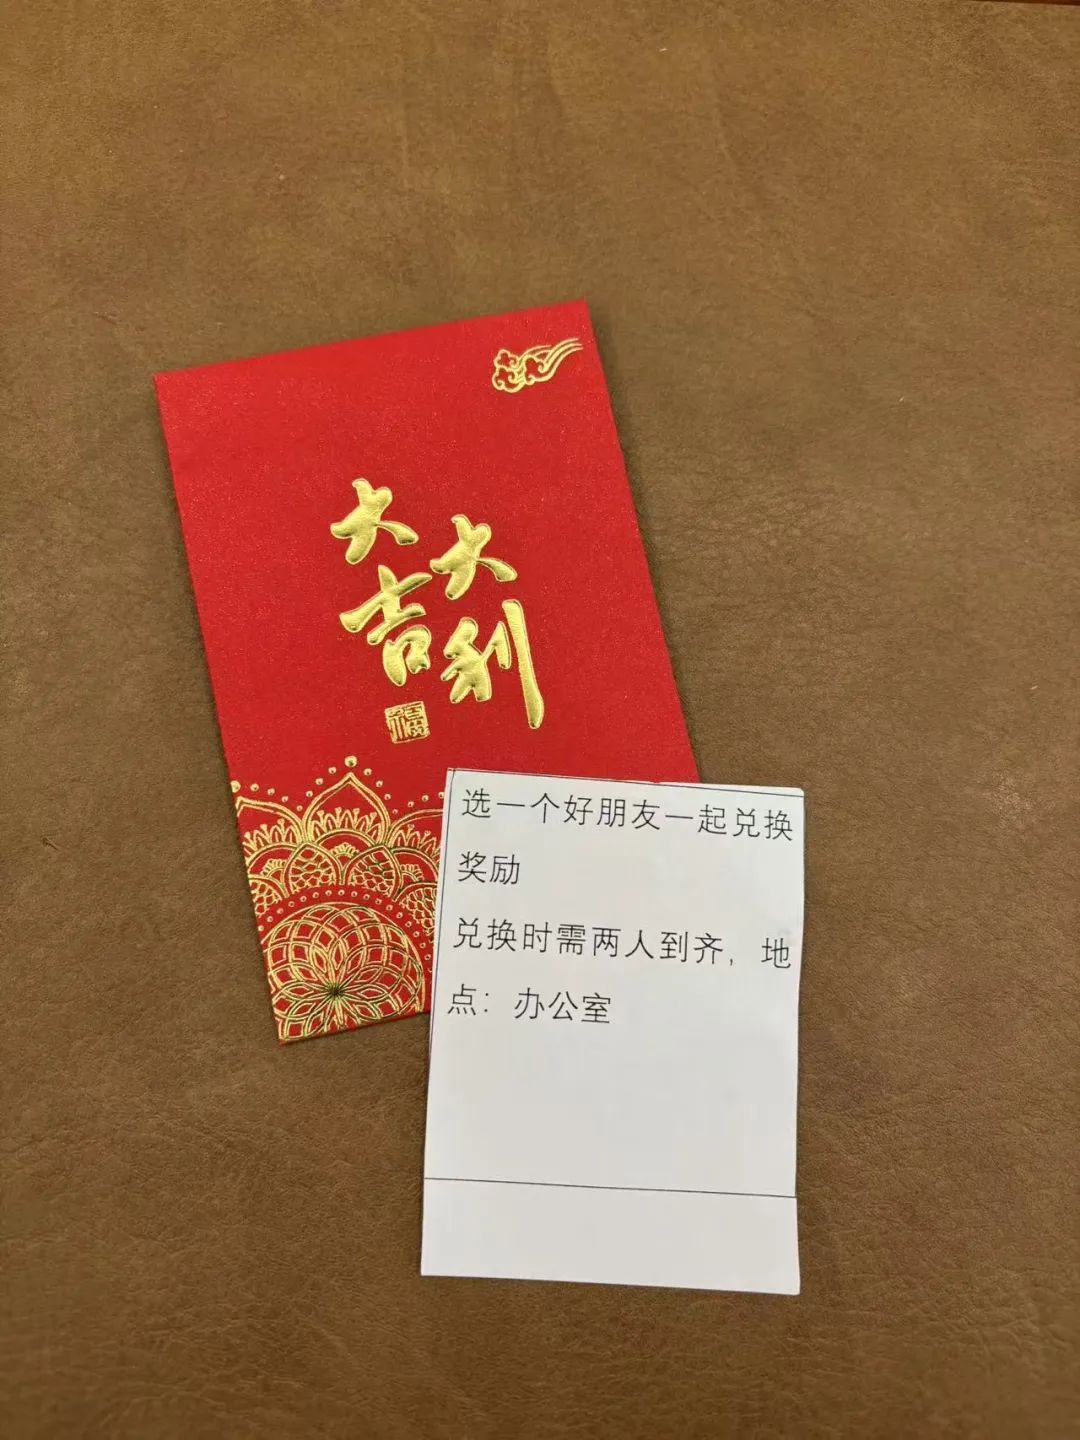 大吉
大利
福
选一个好朋友一起兑换
奖励
兑换时需两人到齐，地
点：办公室